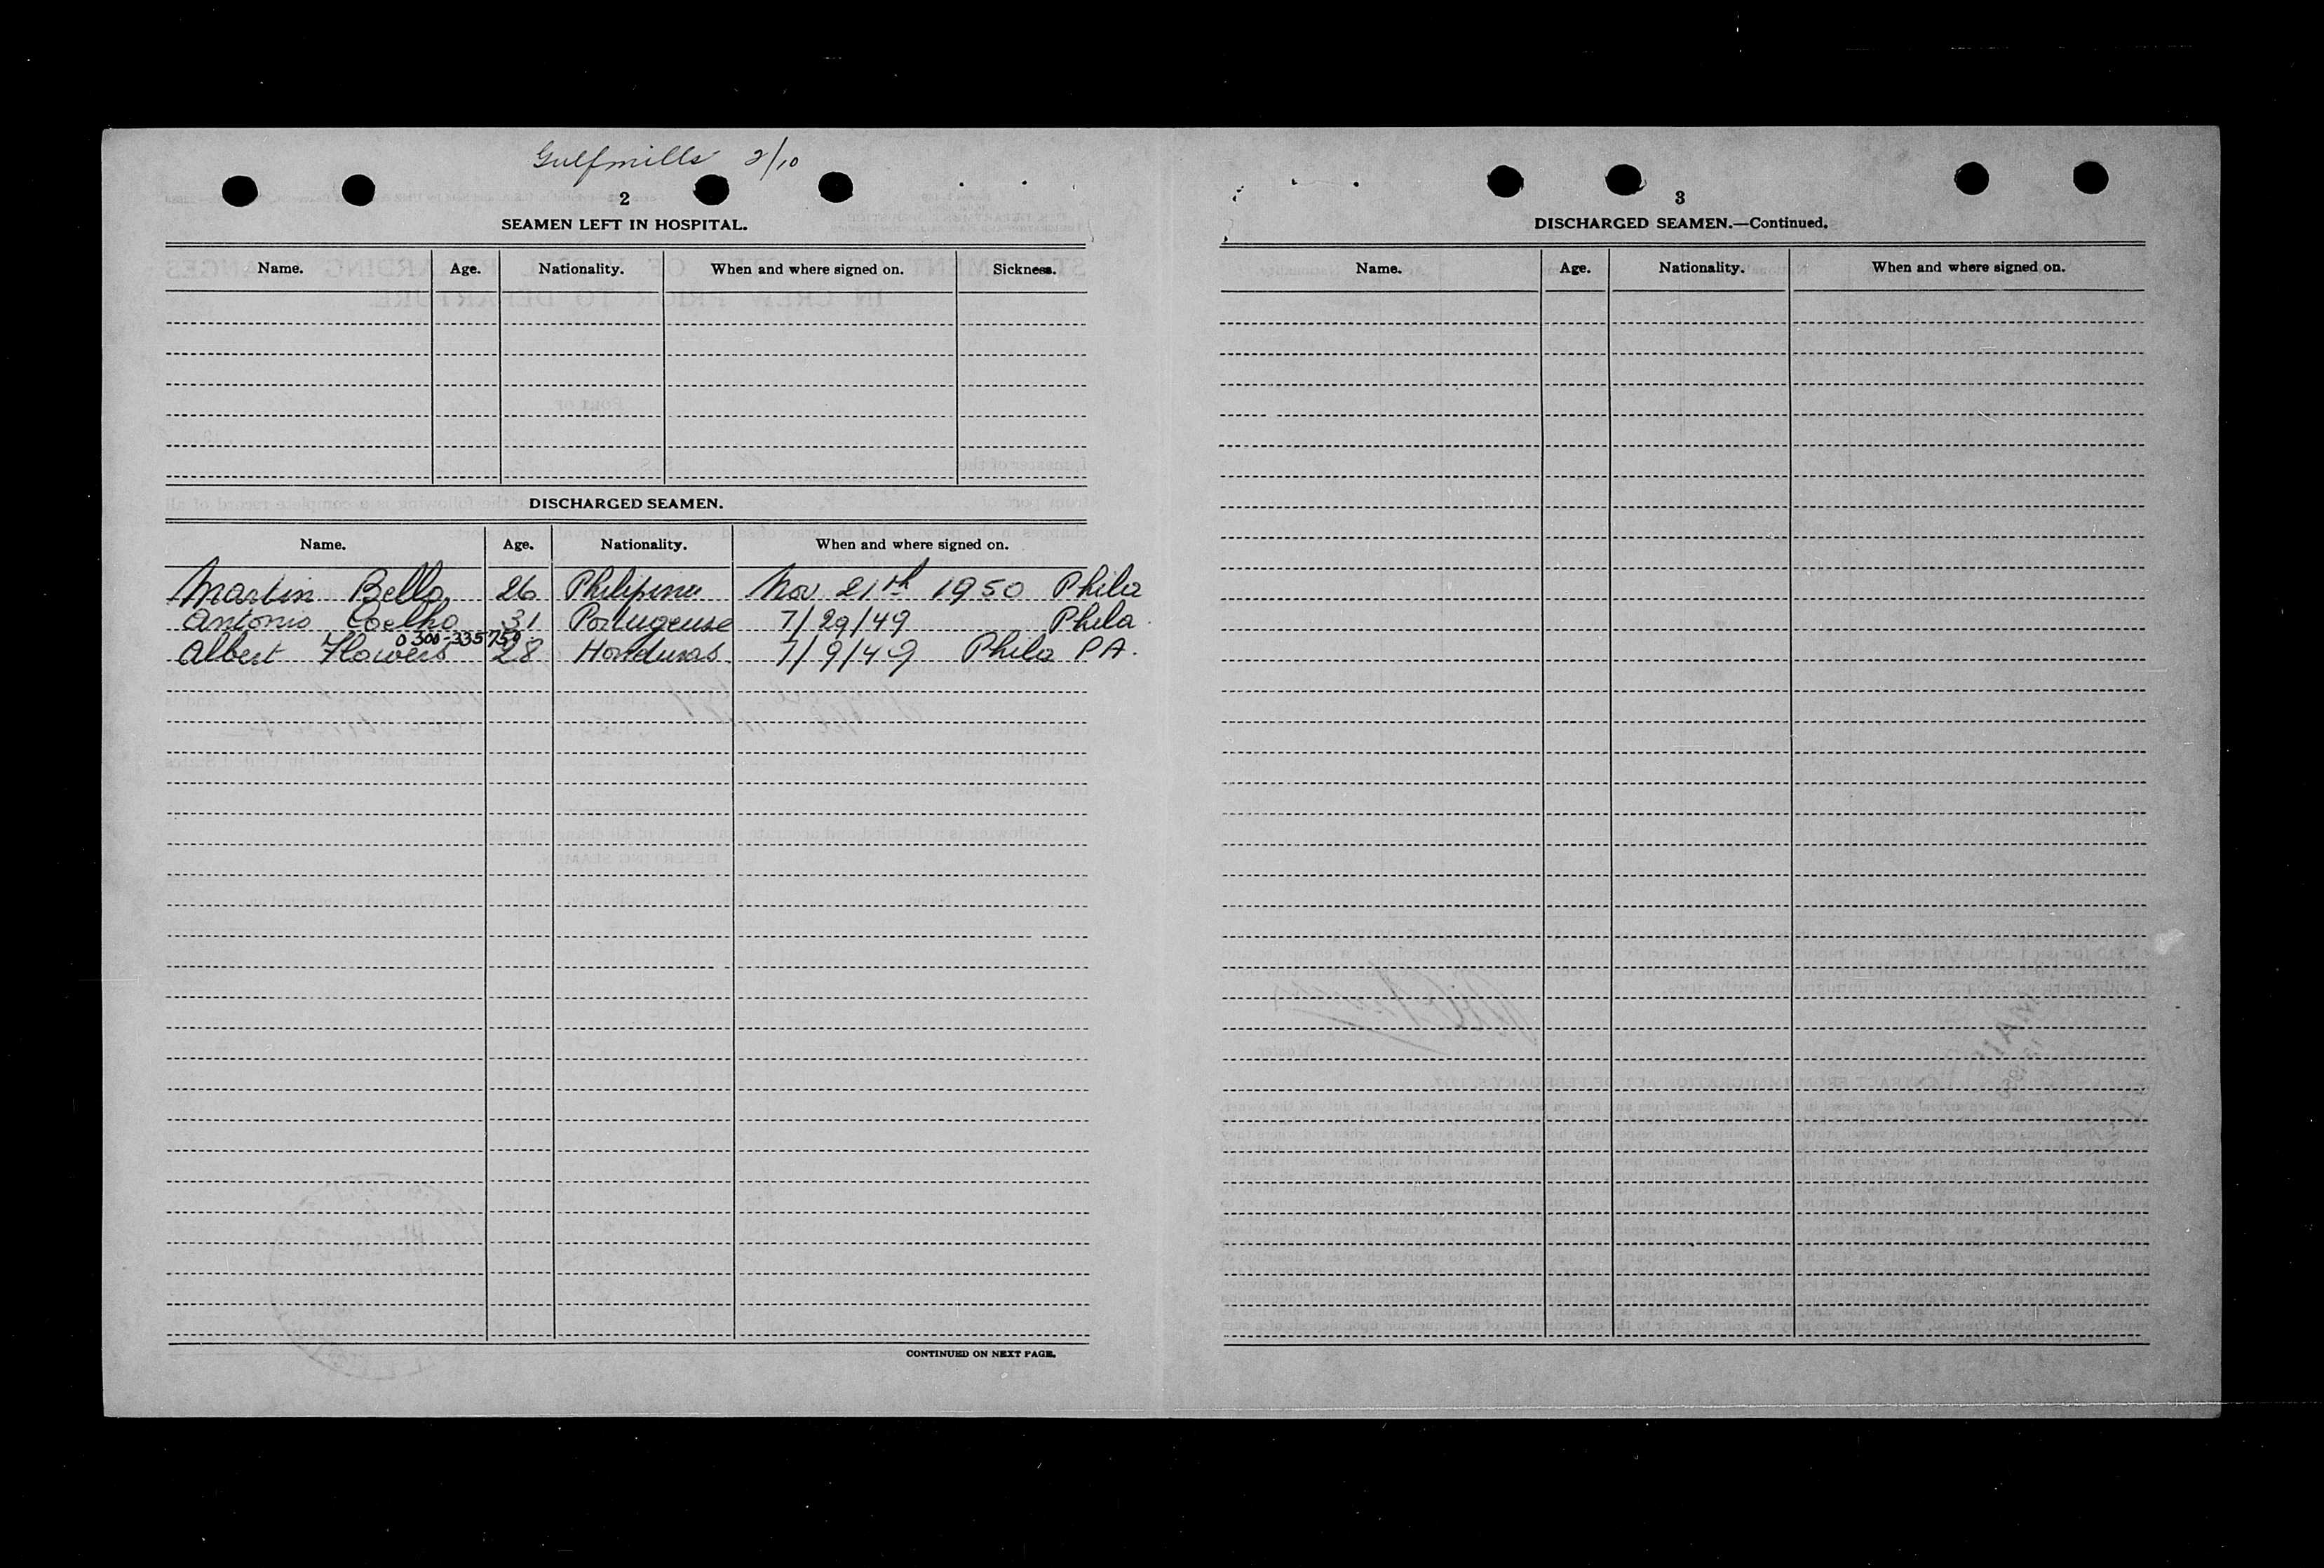 Gulfmills 2/10
2
SEAMEN LEFT IN HOSPITAL.
Name. Age. Nationality. When and where signed on. Sickness.
DISCHARGED SEAMEN.
Name. Age. Nationality. When and where signed on.
Martin Bello 26 Philipine Nov 21th 1950 Phila
Antonio Coelho 31 Portugeuse 7/29/49 Phila.
0300-335750
Albert Flowers 28 Honduras 7/9/49 Phila PA.
CONTINUED ON NEXT PAGE.
3
DISCHARGED SEAMEN.—Continued.
Name. Age. Nationality. When and where signed on.